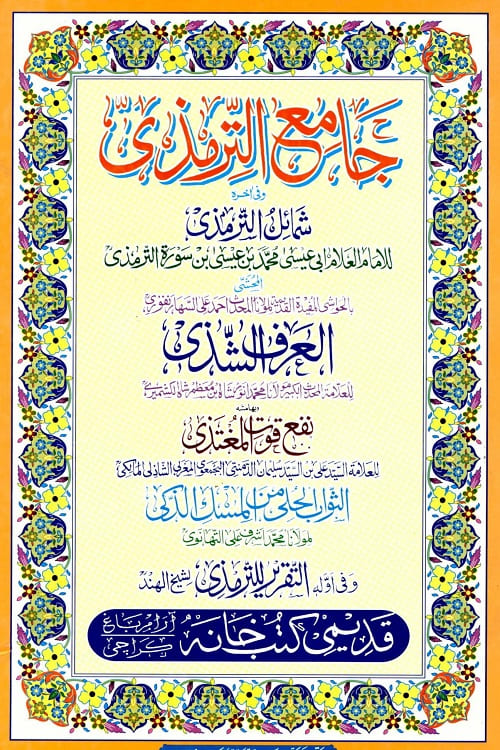 جامع الترمذی
وفی آخره
شمائل الترمذی
للامام العلام ابی عیسیٰ محمد بن عیسیٰ بن سورة الترمذی
المحشی
بالحواشی المفیدة القدیمة لمولانا المحدث احمد علی السهارنفوری
العرف الشذی
للعلامة المحدث الکبیر مولانا محمد انور شاه بن معظم شاه الکشمیری
وبهامشه
نفع قوت المغتذی
للعلامة السید علی بن السید سلیمان الدمنتی البجمعوی المغربی الشاذلی المالکی
الثواب الحلی من المسک الذکی
لمولانا محمد اشرف علی التهانوی
وفی اوله التقریر للترمذی لشیخ الهند
قدیمی کتب خانه آرام باغ کراچی